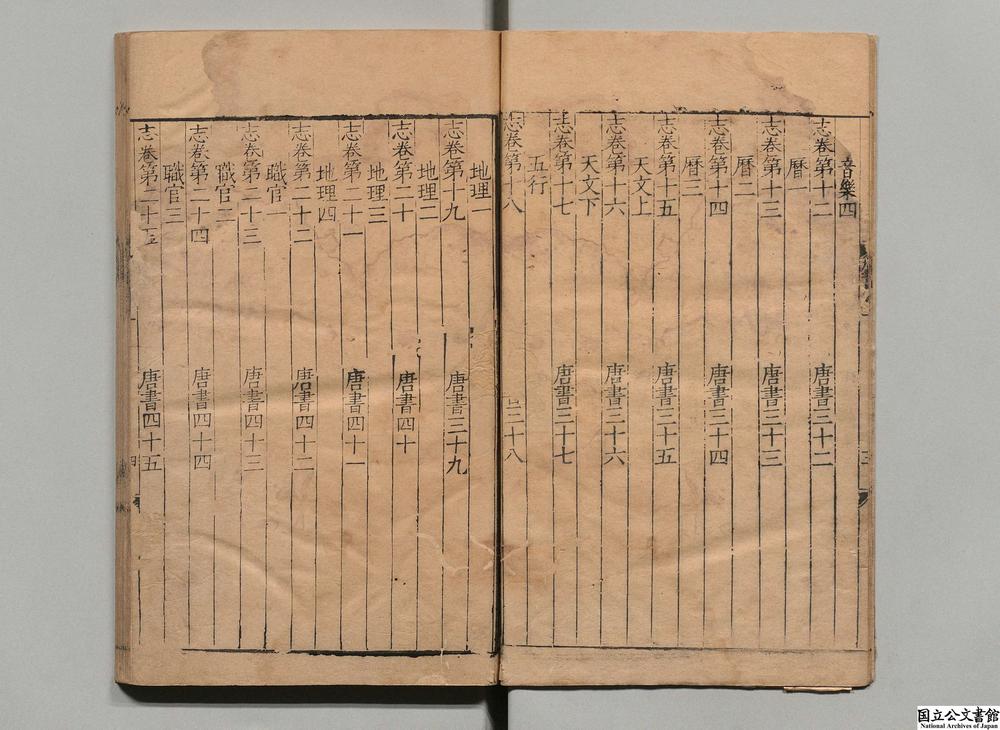 音樂四
志卷第十二 唐書三十二
曆一
志卷第十三 唐書三十三
曆二
志卷第十四 唐書三十四
曆三
志卷第十五 唐書三十五
天文上
志卷第十六 唐書三十六
天文下
志卷第十七 唐書三十七
五行
志卷第十八 三十八
地理一
志卷第十九 唐書三十九
地理二
志卷第二十 唐書四十
地理三
志卷第二十一 唐書四十一
地理四
志卷第二十二 唐書四十二
職官一
志卷第二十三 唐書四十三
職官二
志卷第二十四 唐書四十四
職官三
志卷第二十五 唐書四十五
国立公文書館
National Archives of Japan